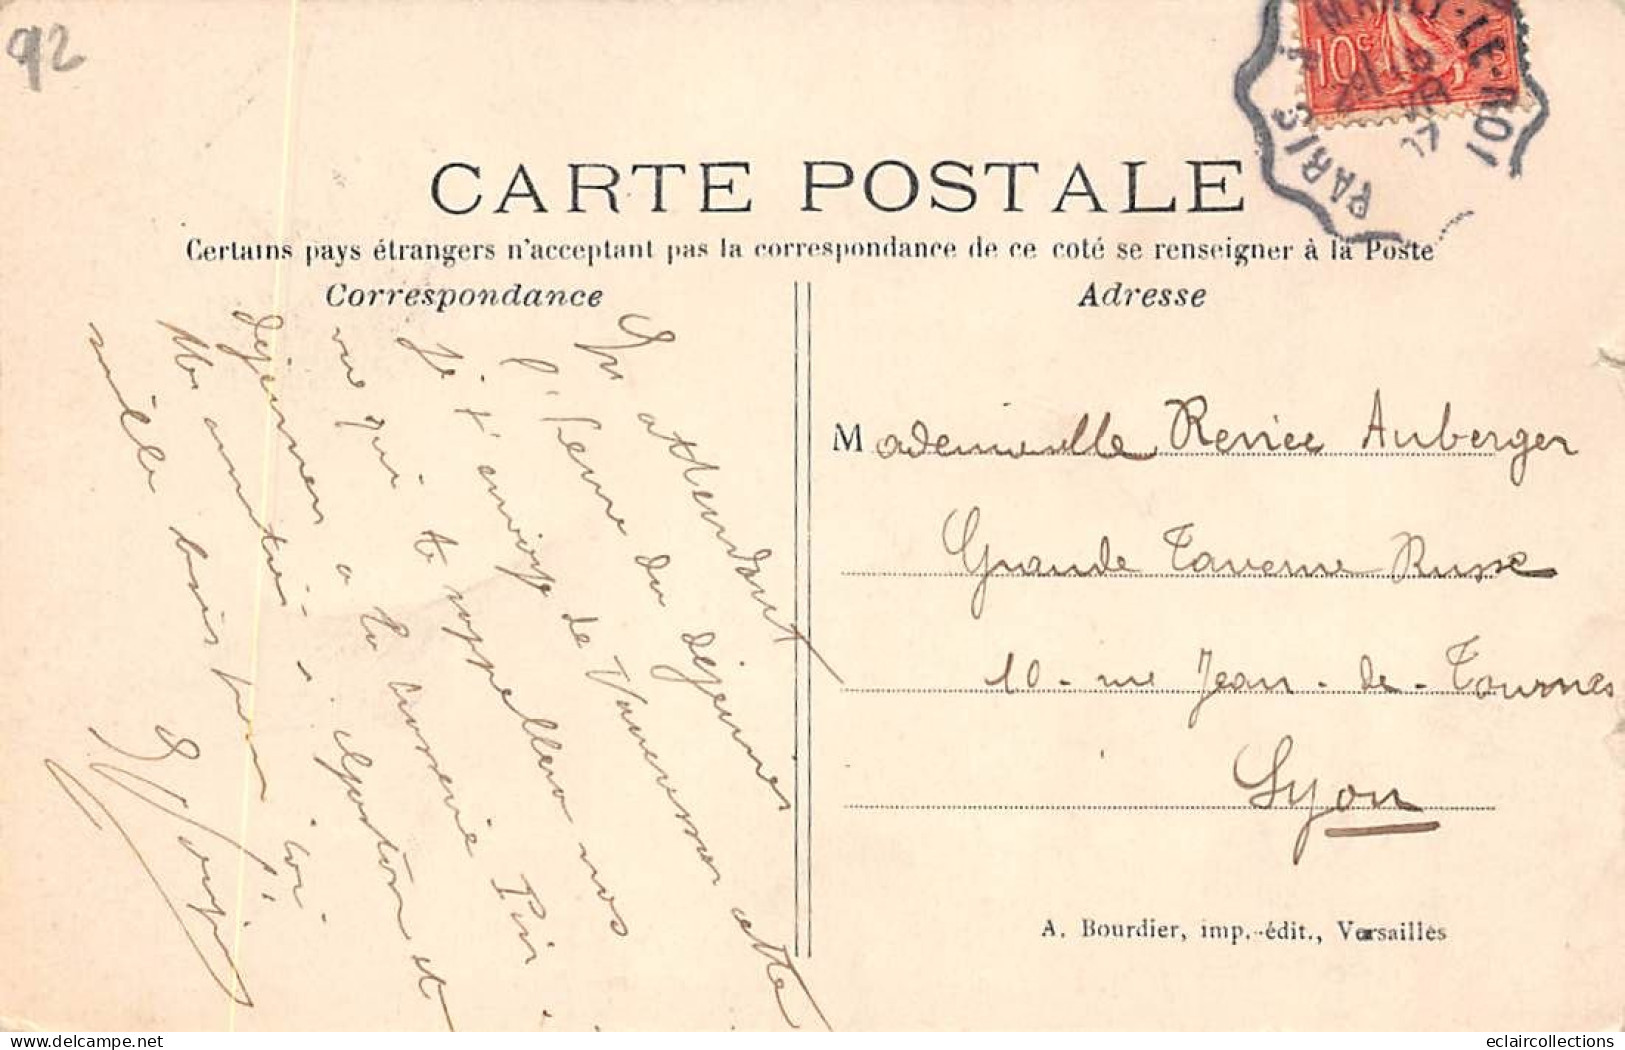 92
PARIS A MARLY-LE-ROI
10c
CARTE POSTALE
Certains pays étrangers n'acceptant pas la correspondance de ce coté se renseigner à la Poste
Correspondance
En attendant
l'heure du déjeuner
je t'envoie de Vaucresson cette
vue qui te rappellera nos
déjeuners à la
et
Mes amitiés à toi
mille bons
Adresse
Mademoiselle Renée Auberger
Grande Taverne Russe
10 - rue Jean - de - Tournes
Lyon
A. Bourdier, imp.-édit., Versailles
delcampe.net
eclaircollections